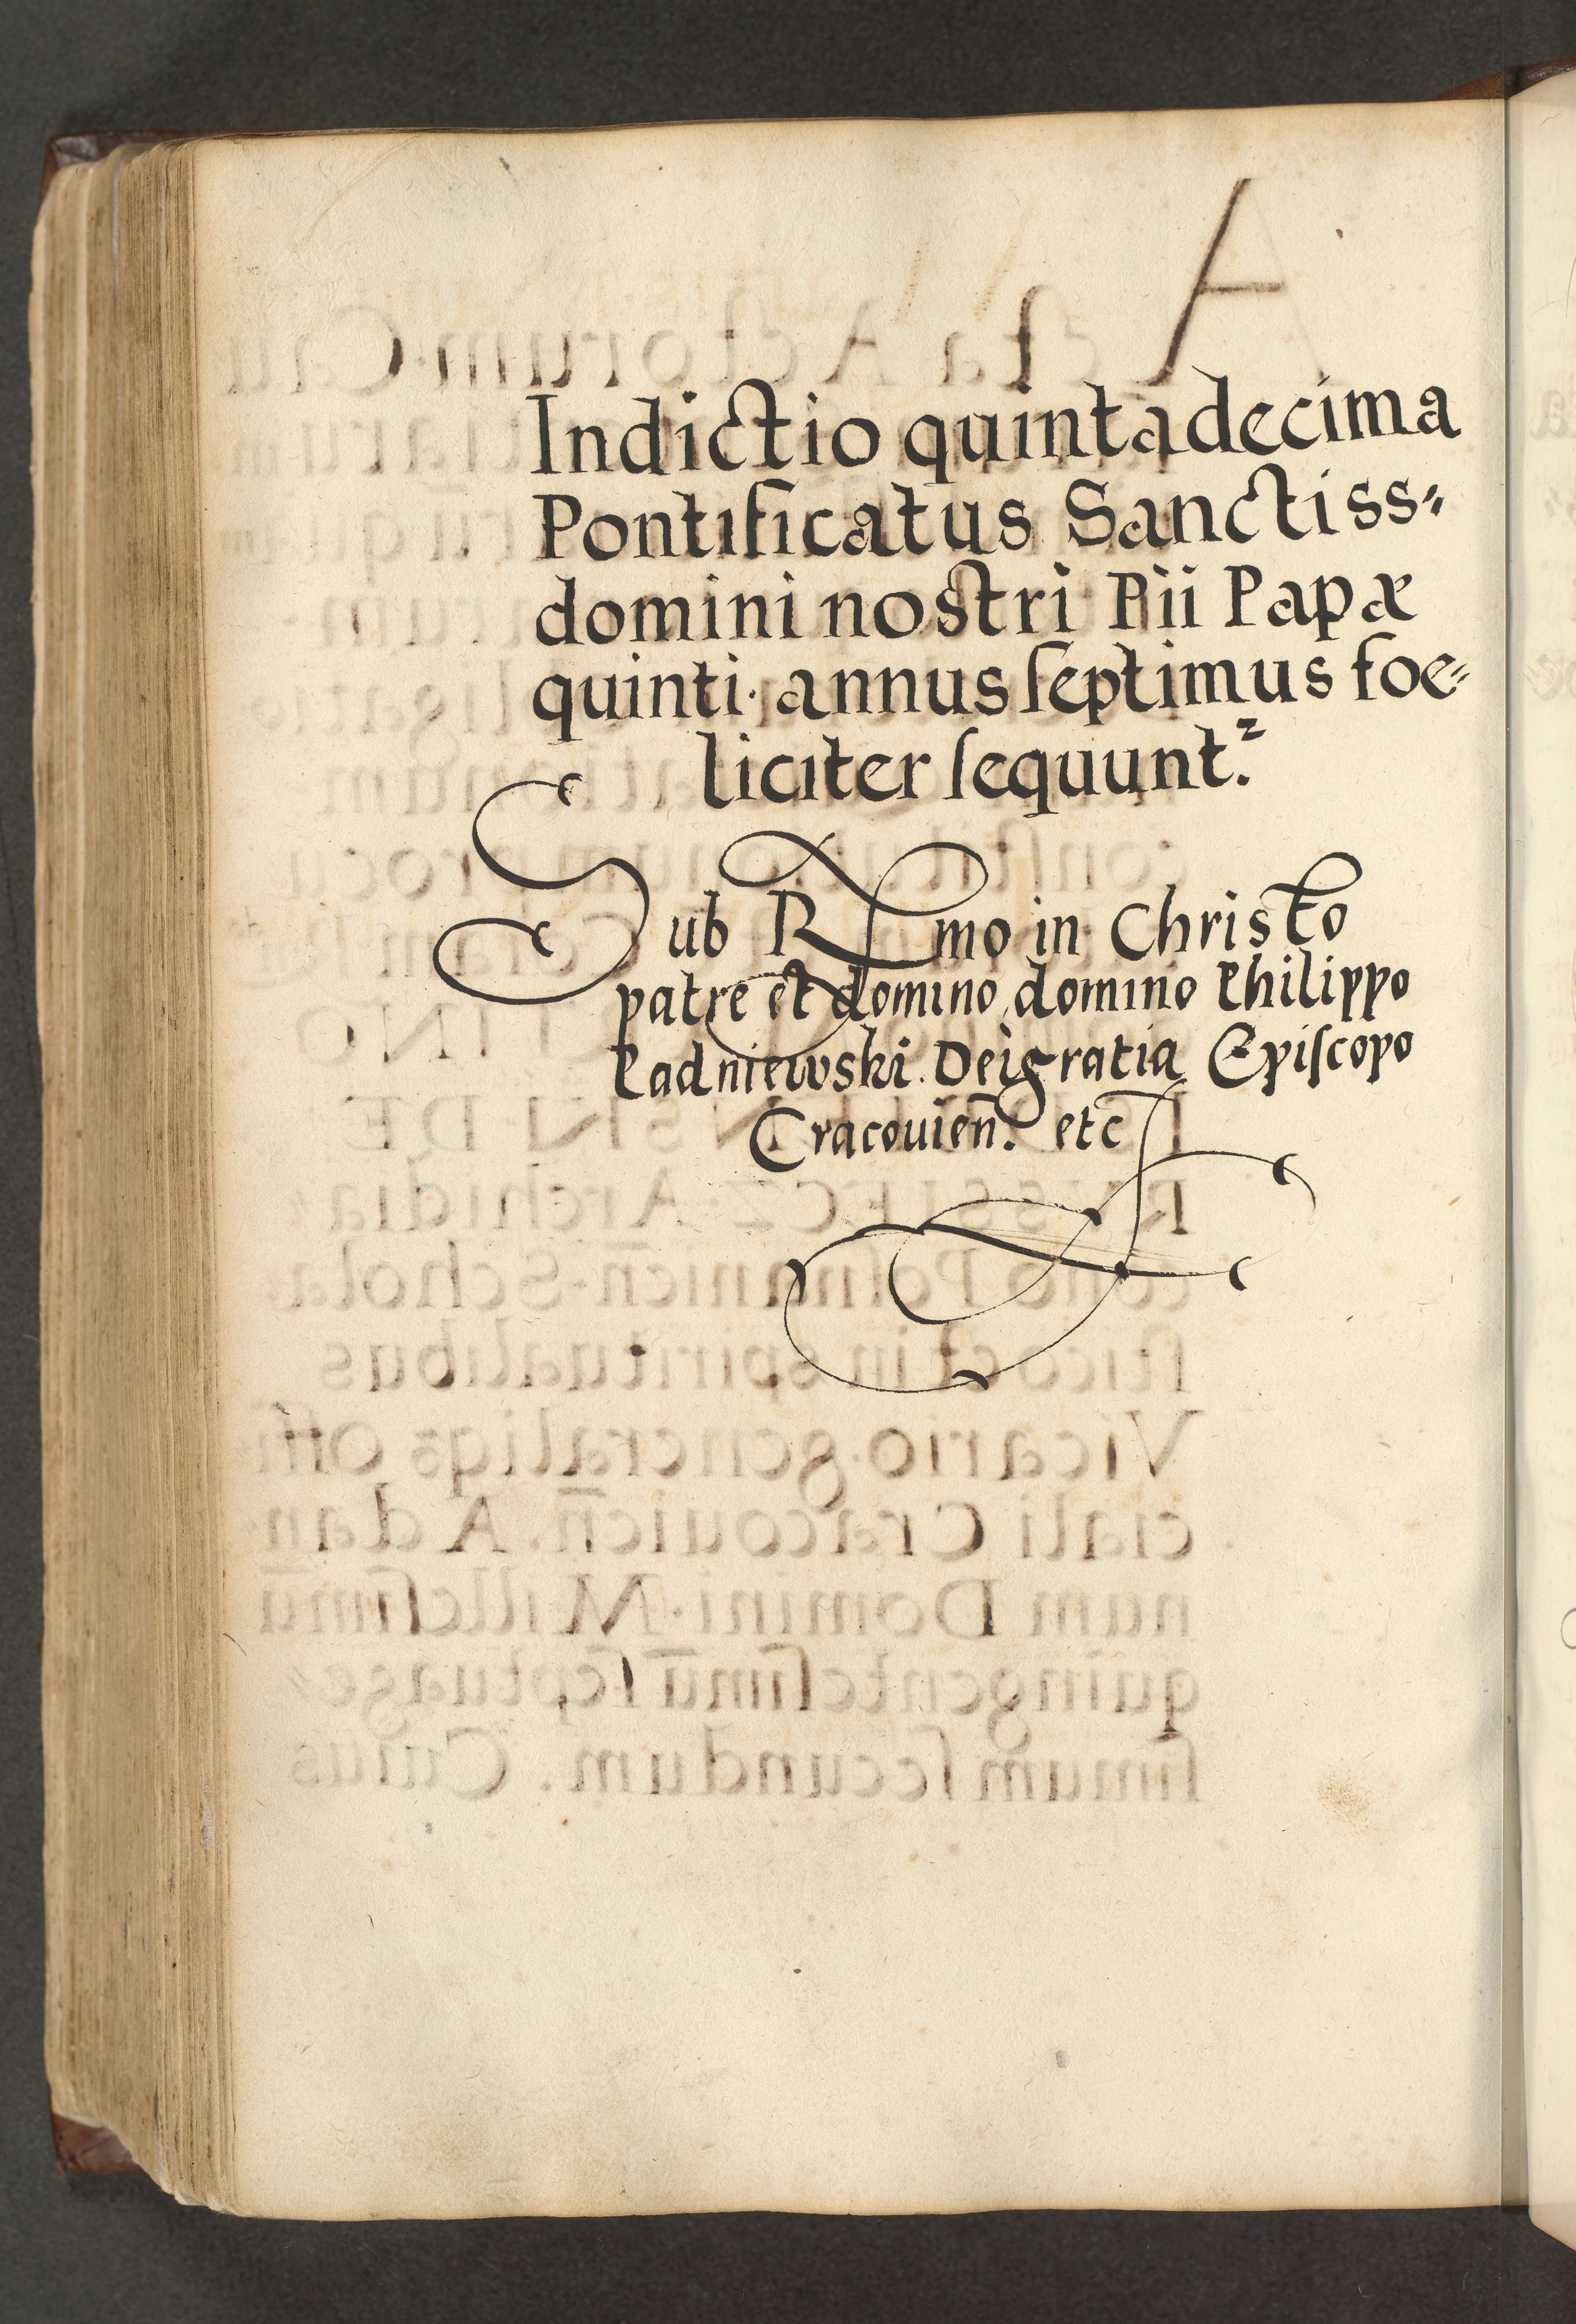 Indictio quintadecima
Pontificatus Sanctiss⸗
domini nostri Pii Papæ
quinti· annus ſeptimus foe⸗
liciter ſequunt.ᶻ
Sub Rmo in Christo
patre et domino domino Philippo
Padniewski. Dei gratia Epiſcopo
Cracouien̄. etc